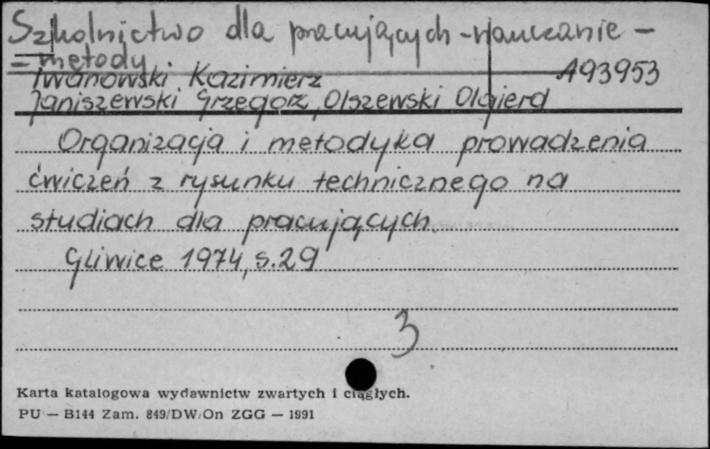 Szkolnictwo dla pracujących - nauczanie -
= metody
Iwanowski Kazimierz A93953
Janiszewski Grzegorz, Olszewski Olgierd
Organizacja i metodyka prowadzenia
ćwiczeń z rysunku technicznego na
studiach dla pracujących
Gliwice 1974, s.29
3
Karta katalogowa wydawnictw zwartych i ciągłych.
PU — B144 Zam. 849/DW/On ZGG — 1991